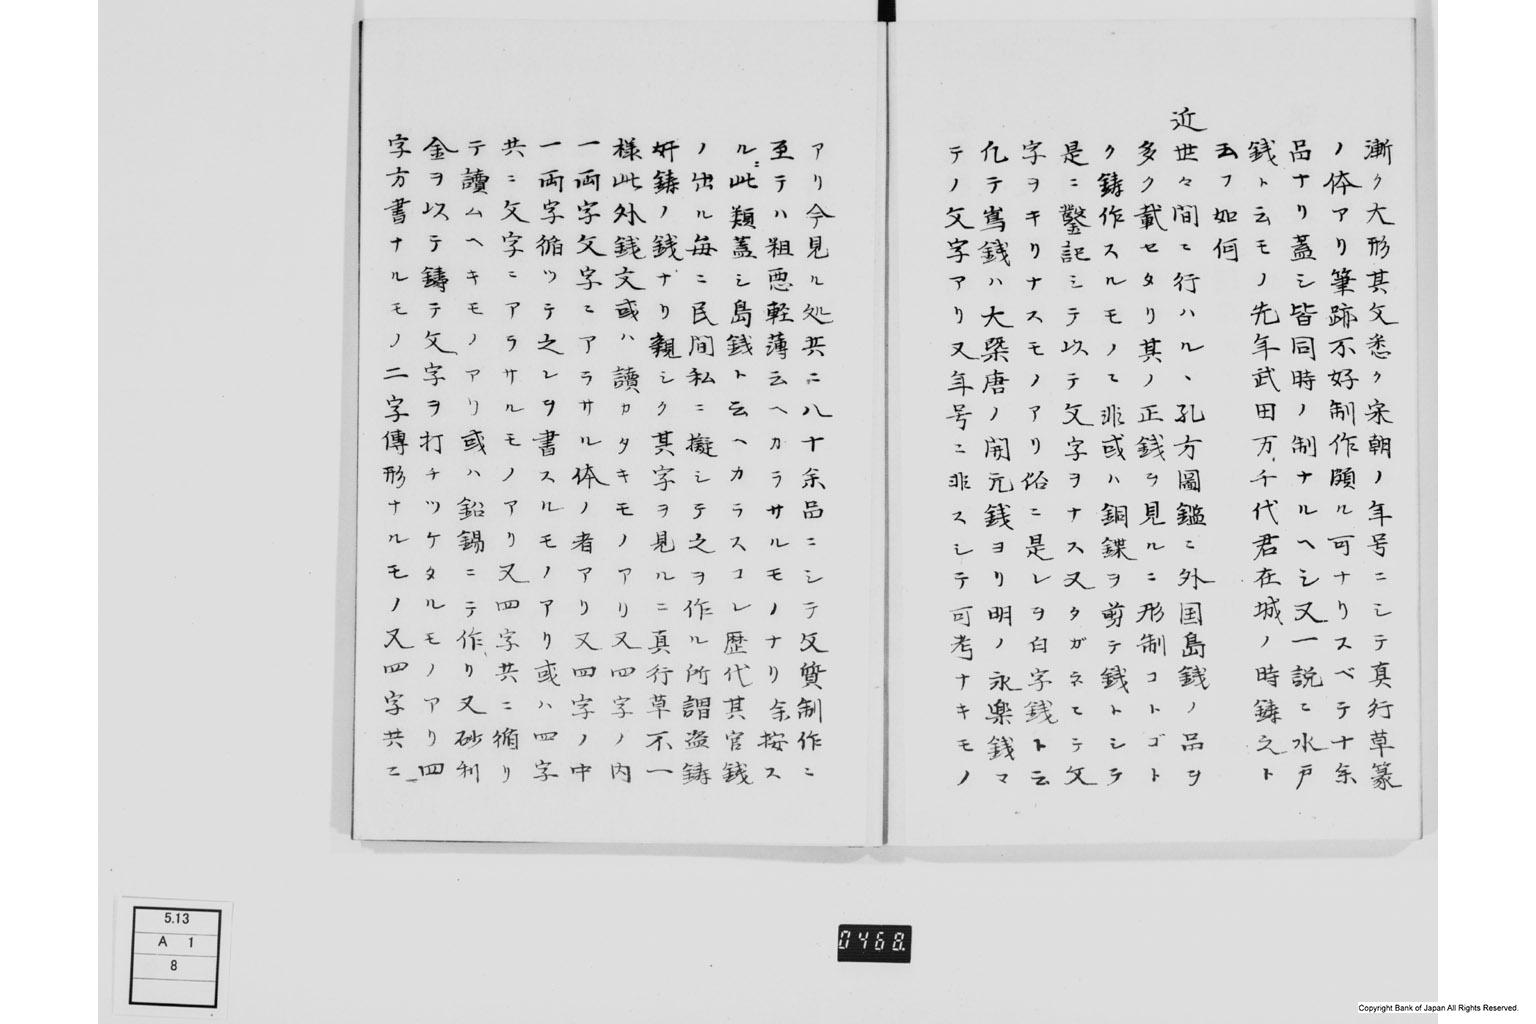 漸ク大形其文悉ク宋朝ノ年号ニシテ真行草篆
ノ体アリ筆跡不好制作頗ル可ナリスベテナ余
品ナリ蓋シ皆同時ノ制ナルヘシ又一説ニ水戸
銭ト云モノ先年武田万千代君在城ノ時鋳之ト
云フ如何
近世々間ニ行ハル、孔方圖鑑ニ外国島銭ノ品ヲ
多ク載セタリ其ノ正銭ヲ見ルニ形制コトゴト
ク鋳作スルモノニ非或ハ銅鍱ヲ剪テ銭トシテ
是ニ鑿記シテ以テ文字ヲナス又タガネニテ文
字ヲキリナスモノアリ俗ニ是レヲ白字銭ト云
凡テ嶌銭ハ大槩唐ノ開元銭ヨリ明ノ永樂銭マ
テノ文字アリ又年号ニ非スシテ可考ナキモノ
アリ今見ル処共ニ八十余品ニシテ文質制作ニ
至テハ粗悪軽薄云ヘカラサルモノナリ余按ス
ルニ此類蓋シ島銭ト云ヘカラスコレ歴代其官銭
ノ出ル毎ニ民間私ニ擬シテ之ヲ作ル所謂盗鋳
奸鋳ノ銭ナリ親シク其字ヲ見ルニ真行草不一
様此外銭文或ハ讀カタキモノアリ又四字ノ内
一両字文字ニアラサル体ノ者アリ又四字ノ中
一両字循ツテ之レヲ書スルモノアリ或ハ四字
共ニ文字ニアラサルモノアリ又四字共ニ循リ
テ讀ムヘキモノアリ或ハ鉛錫ニテ作リ又砂利
金ヲ以テ鋳テ文字ヲ打チツケタルモノアリ四
字方書ナルモノ二字傳形ナルモノ又四字共ニ
5.13
A 1
8
0468.
Copyright Bank of Japan All Rights Reserved.